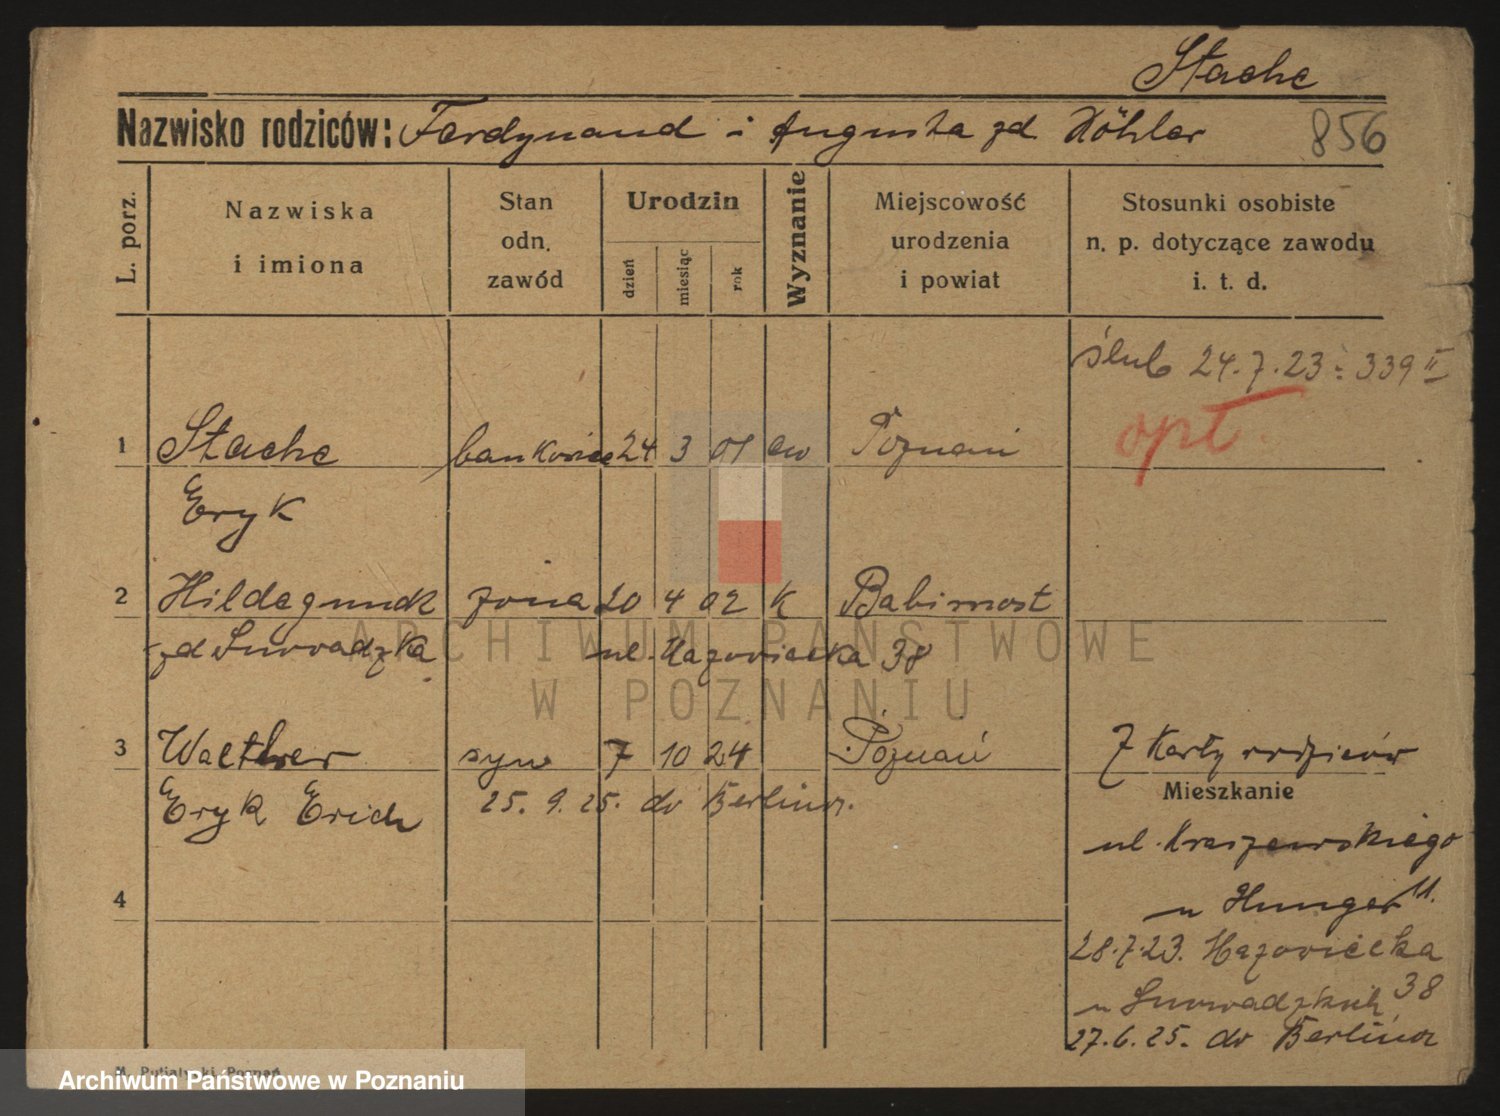 Stache
Nazwisko rodziców: Ferdynand i Augusta zd Köhler 856
L. porz.
Nazwiska i imiona
Stan odn. zawód
Urodzin
dzień miesiąc rok
Wyznanie
Miejscowość urodzenia i powiat
Stosunki osobiste n. p. dotyczące zawodu i. t. d.
ślub 24.7.23 : 339 II
opt.
1 Stache bankowiec 24 3 01 ew Poznań
Eryk
2 Hildegunde żona 20 4 02 k Babimost
zd Surwadzka ul. Mazowiecka 38
3 Walther syn 7 10 24 Poznań
Eryk Erich 25. 9. 25. do Berlina.
Z Karty rodziców
Mieszkanie
ul. Kraszewskiego 11.
u Hunger
4
28.7.23. Mazowiecka 38
u
27.6.25. do Berlina
ARCHIWUM PAŃSTWOWE
W POZNANIU
M. Putiatycki, Poznań
Archiwum Państwowe w Poznaniu